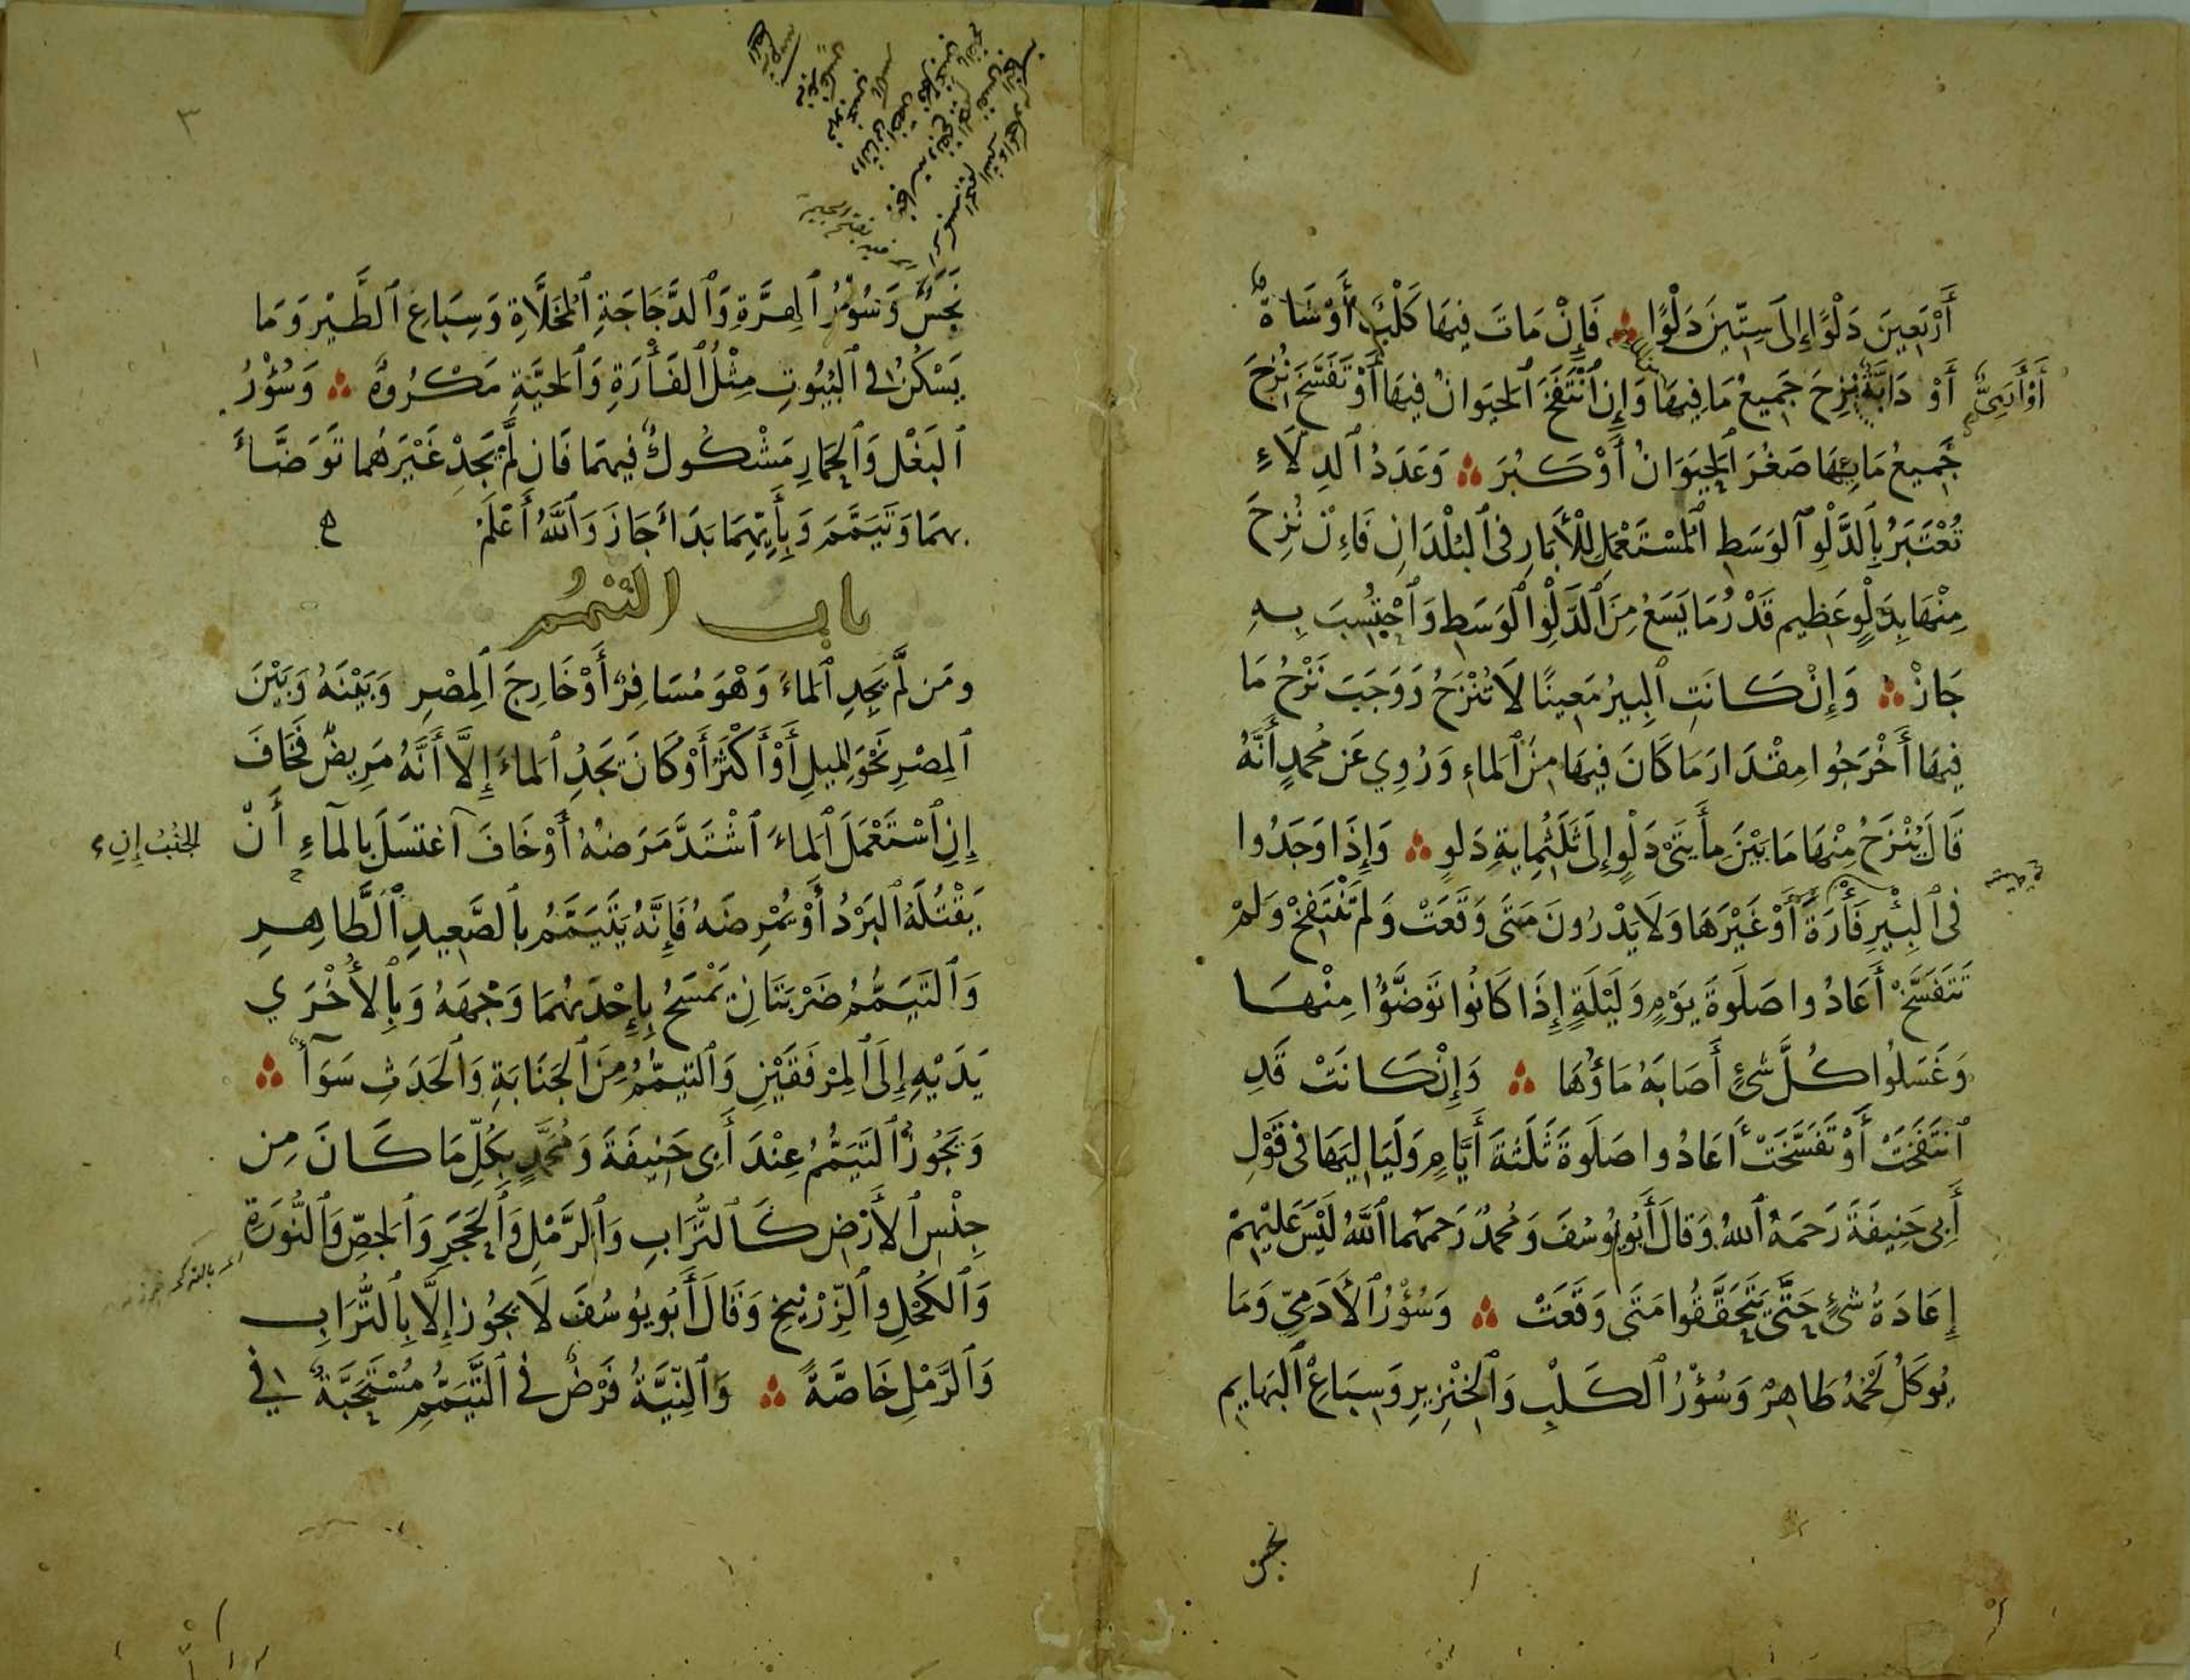 أَرْبَعِينَ دَلْوًا إِلَى سِتِّينَ دَلْوًا ۞ فَإِنْ مَاتَ فِيهَا كَلْبٌ أَوْ شَاةٌ
أَوْ آدَمِيٌّ
أَوْ دَابَّةٌ نُزِحَ جَمِيعُ مَا فِيهَا وَإِنِ ٱنْتَفَخَ ٱلْحَيَوَانُ فِيهَا أَوْ تَفَسَّخَ نُزِحَ
جَمِيعُ مَا فِيهَا صَغُرَ ٱلْحَيَوَانُ أَوْ كَبُرَ ۞ وَعَدَدُ ٱلدِلَاءِ
تُعْتَبَرُ بِٱلدَّلْوِ ٱلْوَسَطِ ٱلْمُسْتَعْمَلِ لِلْأَبَارِ فِى ٱلْبُلْدَانِ فَاِنْ نُزِحَ
مِنْهَا بِدَلْوٍ عَظِيمٍ قَدْرُ مَا يَسَعُ مِنَ ٱلدَّلْوِ ٱلْوَسَطِ وَٱحْتُسِبَ بِهِ
جَازَ ۞ وَإِنْ كَانَتِ ٱلْبِيرُ مَعِينًا لَا تُنْزَحُ وَوَجَبَ نَزْحُ مَا
فِيهَا أَخْرَجُوا مِقْدَارَ مَا كَانَ فِيهَا مِنَ ٱلْمَاءِ وَرُوِي عَن مُحمدٍ أَنَّهُ
قَالَ يُنْزَحُ مِنْهَا مَا بَيْنَ مِأَيتَىْ دَلْوٍ إِلَى ثَلَثُمِايةِ دَلوٍ ۞ وَإِذَا وَجَدُوا
فِى ٱلْبِئْرِ فَأْرَةً أَوْ غَيْرَهَا وَلَا يَدْرُونَ مَتَى وَقَعَتْ وَلَمْ تَنْتَفِخْ وَلَمْ
تَتَفَسَّخْ أَعَادُوا صَلَوةَ يَوْمٍ وَلَيْلَةٍ إِذَا كَانُوا تَوَضَّؤُا مِنْهَا
وَغَسَلُوا كُلَّ شَىْءٍ أَصَابَهُ مَاؤُهَا ۞ وَإِنْ كَانَتْ قَدِ
ٱنْتَفَخَتْ أَوْ تَفَسَّخَتْ أَعَادُوا صَلَوةَ ثَلَثَةَ أَيَّامٍ وَلَيَالِيهَا فِى قَوْلِ
أَبِى حَنِيفَةَ رَحمَهُ ٱللهُ وَقَالَ أَبُو يُوسُفَ وَمُحمدٌ رَحمَهُمَا ٱللَّهُ لَيْسَ عَلَيْهِمْ
إِعَادَةُ شَىْءٍ حَتَّى يَتَحَقَّقُوا مَتَى وَقَعَتْ ۞ وَسُؤْرُ ٱلْأَدَمِيِّ وَمَا
يُوكَلُ لَحْمُهُ طَاهِرٌ وَسُؤْرُ ٱلْكَلْبِ وَٱلْخِنْزِيرِ وَسِبَاعِ ٱلْبَهَايِمِ
نجس
٣
نَجَسٌ وَسُؤْرُ ٱلْهِرَّةِ وَٱلدَّجَاجَةِ ٱلْمُخَلَّاةِ وَسِبَاعِ ٱلطَّيْرِ وَمَا
يَسْكُنُ فِى ٱلْبُيُوتِ مِثْلُ ٱلْفَأْرَةِ وَٱلْحَيَّةِ مَكْرُوهٌ ۞ وَسُؤْرُ
ٱلْبَغْلِ وَٱلْحِمَارِ مَشْكُوكٌ فِيهِمَا فَان لَّمْ يَجِدْ غَيْرَهُما تَوَضَّأَ
بِهِمَا وَتَيَمَّمَ وَبِأَيِّهِمَا بَدَأَ جَازَ وَٱللَّهُ أَعْلَمُ
باب التيمم
ومَن لَّم يَجِدِ ٱلْمَاءَ وَهْوَ مُسَافِرٌ أَوْ خَارِجَ ٱلْمِصْرِ وَبَيْنَهُ وَبَيْنَ
ٱلْمِصْرِ نَحْوَ ٱلْمِيلِ أَوْ أَكْثَرُ أَوْ كَانَ يَجَدُ ٱلْمَاءَ إِلَّا أَنَّهُ مَرِيضٌ فَخَافَ
إِنِ ٱسْتَعْمَلَ ٱلْمَاءَ ٱشْتَدَّ مَرَضُهُ أَوْ خَافَ ٱغتَسَلَ بِالمَآءِ أَنْ
الجُنُبُ إِنِ
يَقْتُلَهُ ٱلْبَرْدُ أَوْ يُمْرِضَهُ فَإِنَّهُ يَتَيَمَّمُ بِٱلصَّعِيدِ ٱلطَّاهِرِ
وَٱلتَّيَمُّمُ ضَرْبَتَانِ يَمْسَحُ بِإِحْدَيهُمَا وَجْهَهُ وَبِٱلْأُخْرَي
يَدَيْهِ إِلَى ٱلْمِرْفَقَيْنِ وَٱلتَّيَمُّمُ مِنَ ٱلْجَنَابَةِ وَٱلْحَدَثِ سَوَآءٌ ۞
وَيَجُوزُ ٱلتَّيَمُّمُ عِنْدَ أَبِى حَنِيفَةَ وَمُحَمَّدٍ بِكُلِّ مَا كَانَ مِن
جِنْسِ ٱلْأَرْضِ كَٱلتُّرَابِ وَٱلرَّمْلِ وَٱلْحَجَرِ وَٱلْجِصِّ وَٱلنُّورَةِ
وَٱلْكُحْلِ وٱلزِّرْنِيخِ وَقَالَ أَبُو يُوسُفَ لَا يَجُوز إِلَّا بِٱلتُّرَابِ
وَٱلرَّمْلِ خَاصَّةً ۞ وَٱلنِّيَّةُ فَرْضٌ فِى ٱلتَّيَمُّمِ مُسْتَحَبَّةٌ فِي